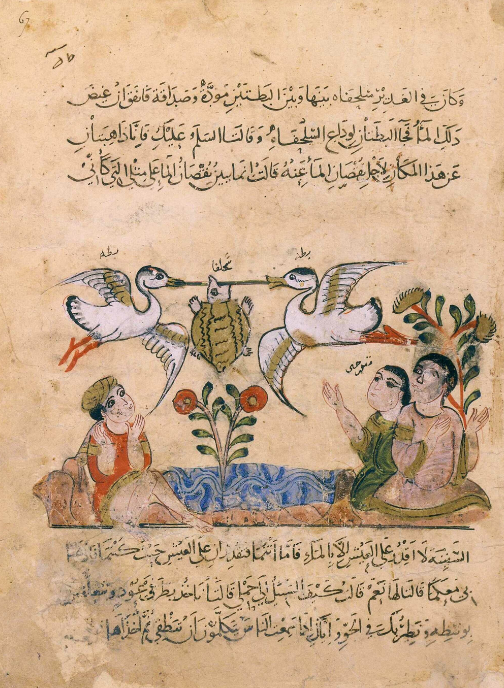 وكان في الغدير سلحفاه بينها وبين البطتين مودة وصداقة فاتفق ان غيض
ذلك الماء فجاء البطتان لوداع السلحفاة وقالتا السلم عليك فاننا ذاهبتان
عن هذا المكان لاجل نقصان الماء عنه قالت انما يبين نقصان الماء على مثلي التي كاني
بطه
سلحفا
بطه
السفينة لا اقدر على العيش الا بالماء فاما انتما فتقدران على العيش حيث كنتما
بي معكما قالتا لها نعم قالت كيف السبيل الى حملي قالتا ناخذ بطرفي عود
بوسطه ونطير بك في الجو واياك اذا سمعت الناس يتكلمون ان تنطقي ثم اخذاها